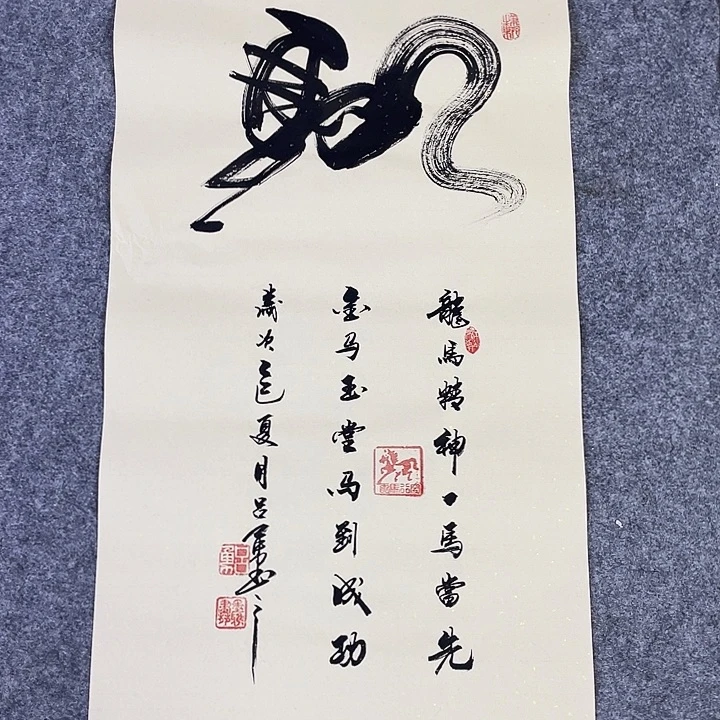 龍馬精神一馬當先
金马玉堂马到成功
歲次乙巳夏月吕